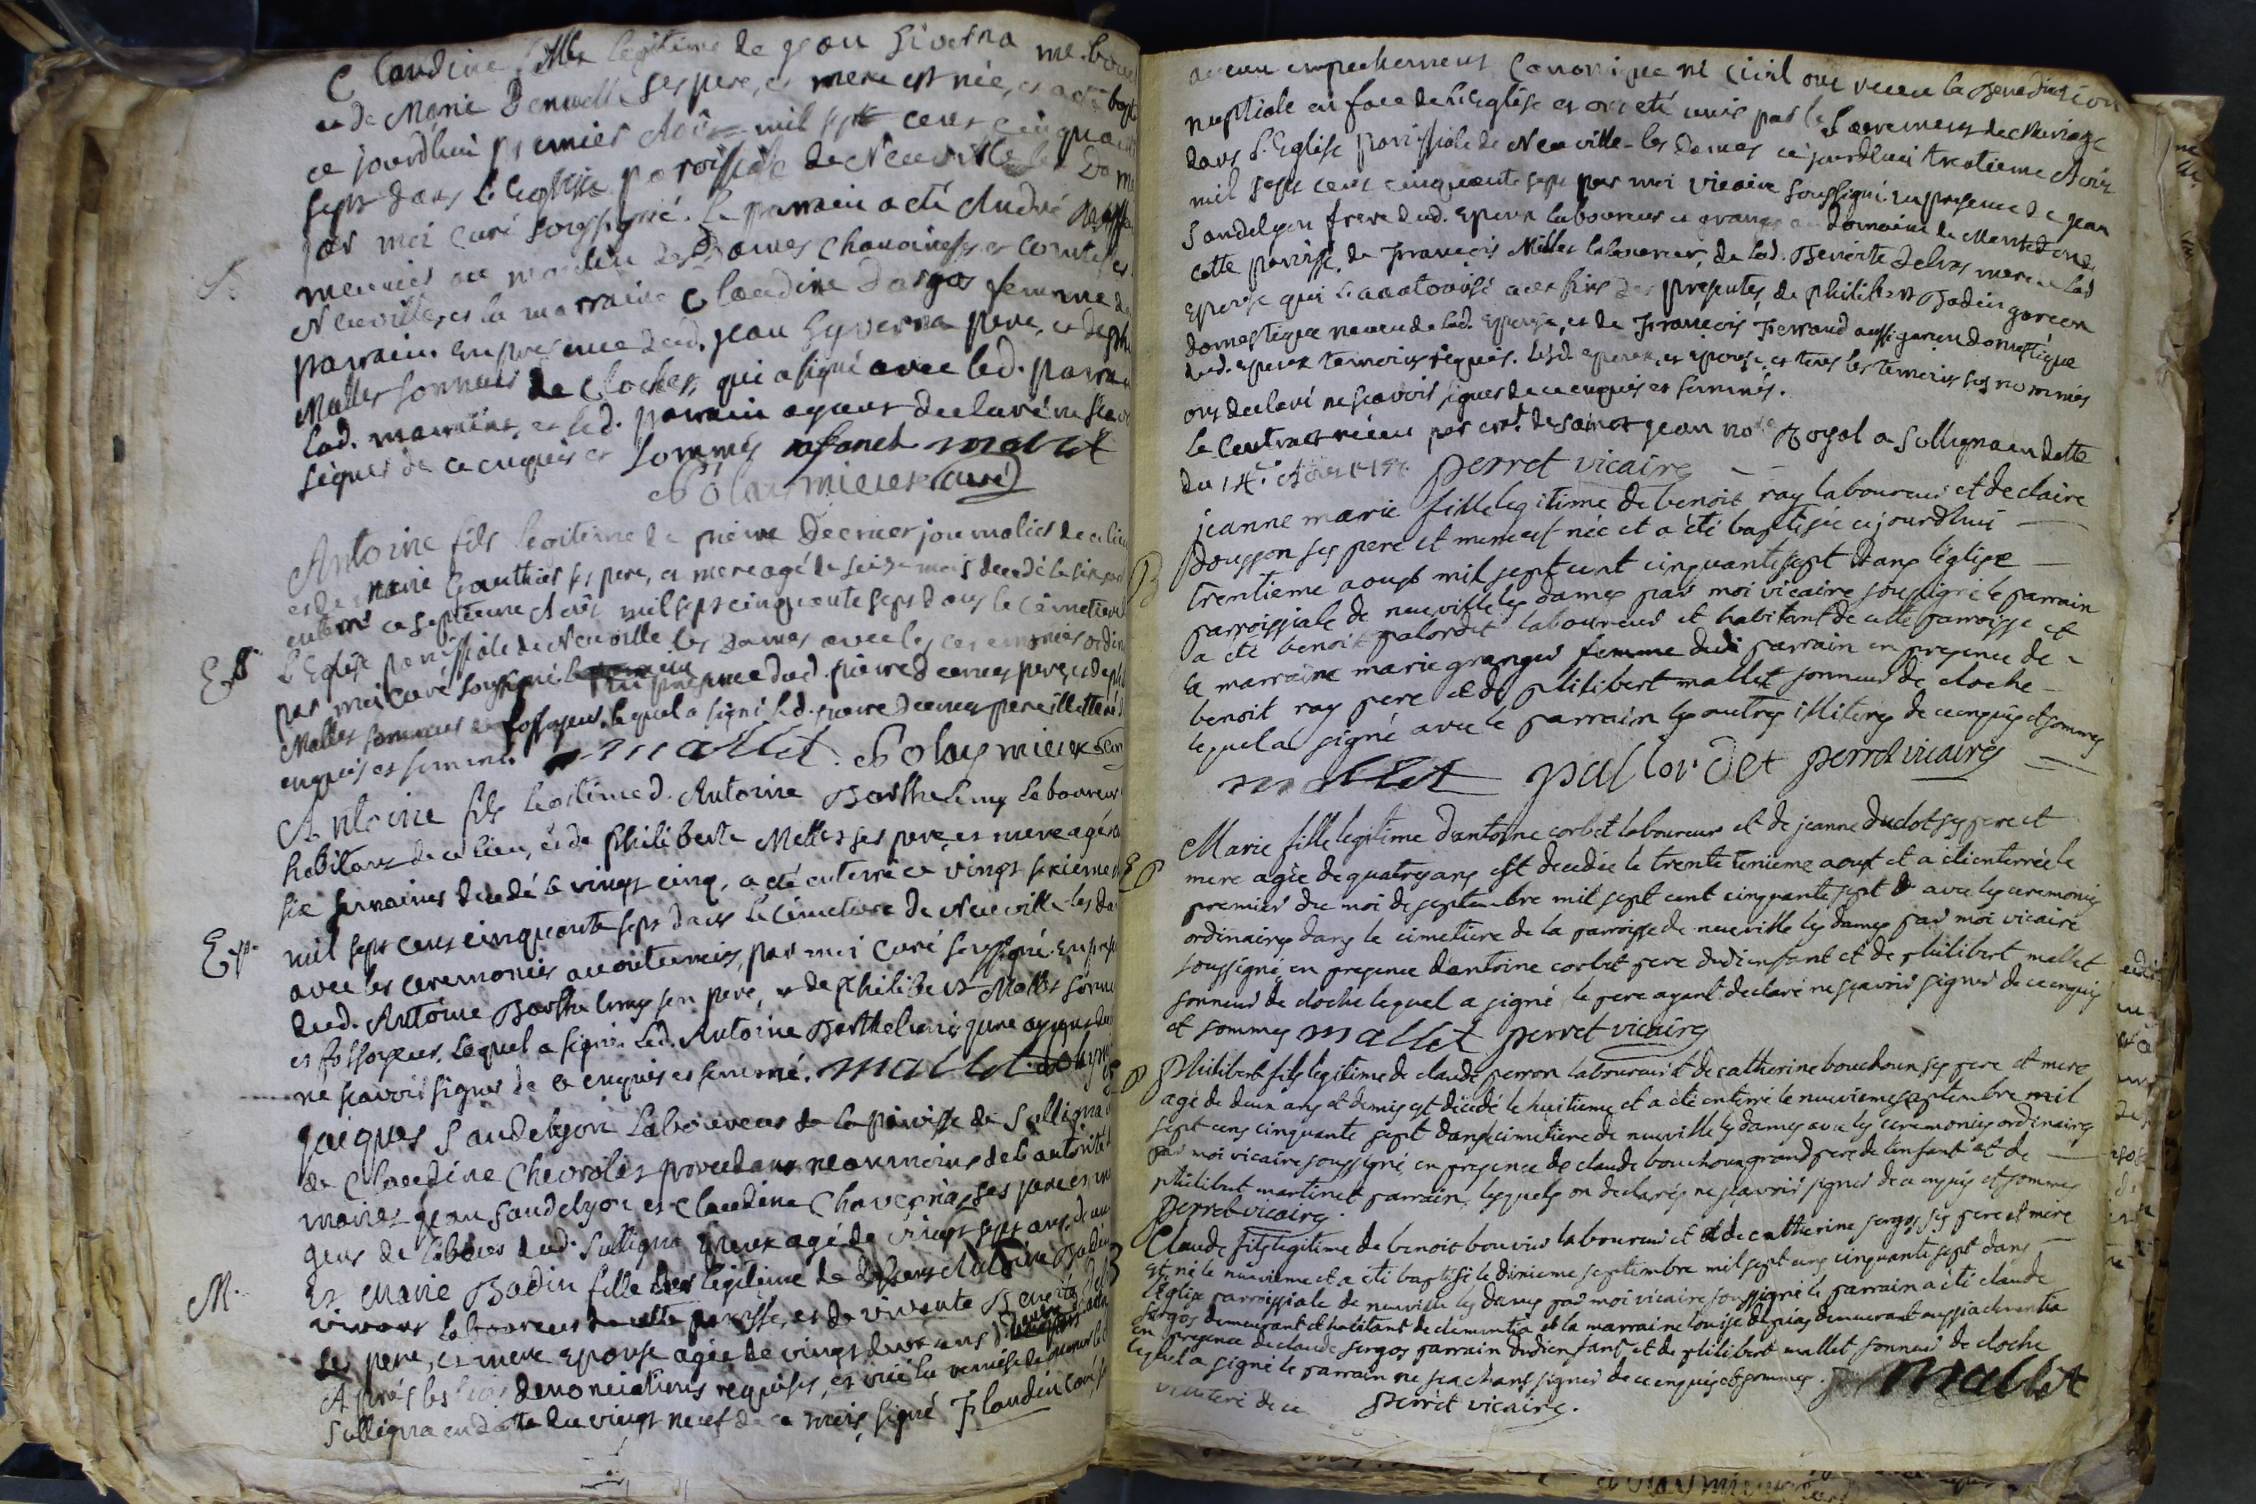 Claudine fille legitime de jean Giverna me. boul
et de Marie ses pere, et mere est née, et a été bapt
ce jourdhui premier Aoûst mil sept cent cinquante
sept dans L'eglise paroissiale de Neuville les Dames
par moi curé soussigné. Le parrain a été André
meunier au moulin des Dames Chanoinesses et comtesses
Neuville, et la marraine Claudine femme d
parrain. En presence dud. jean Gyverna pere, et de phi
Mallet sonneur de cloches qui a signé avec led. parrain
lad. marraine, et led. parrain ayant declaré ne scavoir
signer de ce enquis et sommés mallet
Polaymieux curé
Antoine fils legitime de pierre Decruer journalier de ce lieu
et de marie Gauthier ses pere, et mere agé de seize mois decedé le six a
enterré ce septieme Aoûst mil sept cinquante sept dans le cimetiere
Es L'Eglise paroissiale de Neuville les Dames avec les ceremonies ordin
par moi curé soussigné. En presence dud. pierre pere, et de phi
Mallet sonneur et fossoyeur lequel a signé led. pierre pere illitteré d
enquis et sommé. mallet. Polaymieux
Antoine fils legitime d. Antoine Barthelemy laboureur
habitant de ce lieu, et de philiberte Mallet ses pere, et mere agé
six semaines decedé le vingt cinq, a été enterré ce vingt sixieme
Ep. mil sept cent cinquante sept dans le cimetiere de Neuville les da
avec les ceremonies accoutumées, par moi curé soussigné. En prese
dud. Antoine Barthelemy son pere, et de philibert Mallet sonne
et fossoyeur. Lequel a signé. Led. Antoine Barthelemi pere ayant de
ne scavoir signer de ce enquis et sommé. mallet.
Jacques Sandelyon Laboureur de la paroisse de Sulligna
de Claudine procedant neanmoins de l'autorité
maries jean Sandelyon et Claudine ses pere et m
gens de labeur dud. Sulligna Epoux agé de vingt sept ans, d'un
M. Et Marie Badin fille legitime de deffunt Antoine Badin
vivant laboureur de cette paroisse, et de vivante Benoite Del
ses pere, et mere epouse agée de vingt deux ans
Après les trois denonciations requises, et vûe la remise de
Sulligna en date du vingt neuf de ce mois, signé Flandin curé, s
aucun empechement Canonique ni civil ont recus la Benediction
nuptiale en face de l'Eglise et ont eté unis par le Sacrement de Mariage
dans L'Eglise paroissiale de Neuville-les Dames ce jourdhui trentieme Aoûst
mil sept cent cinquante sept par moi vicaire soussigné. En presence de jean
Sandelyon frere dud. Epoux laboureur et granger au domaine de
cette paroisse, de François Millet laboureur, de lad. Benoite Delvas mere de lad
Epouse qui l'a autorisé a ces fins des presentes, de philibert Badin garcon
domestique neveu de lad. Epouse, et de François Ferrand aussi garcon domestique
dud. epoux temoins requis. Lesd. epoux, et epouse, et tous les temoins sus nommés
ont declaré ne scavoir signer de ce enquis et sommés.
Le Contract recu par de Sainct jean no.re Royal a Sulligna en datte
du 14.e Aoust perret vicaire
jeanne marie fille legitime de benoit ray laboureur et de claire
B Dousson ses pere et mere est née et a été baptisée cejourdhui
trentieme aoust mil sept cent cinquante sept Dans l'église
parroissiale de neuville les dames par moi vicaire soussigné le parrain
a été benoit palordet laboureur et habitant de cette parroisse et
la marraine marie granger femme dudi parrain en presence de
benoit ray pere et de philibert mallet sonneur de cloche
lequel a signé avec le parrain les autres illiteres de ce enquis et sommes
mallet pallordet perret vicaire
Marie fille legitime d'antoine corbet laboureur et de jeanne duclot ses pere et
mere agée de quatres ans est decedée le trente unieme aoust et a eté enterrée le
premier du moi de septembre mil sept cent cinquante sept avec les ceremonies
ordinaires dans le cimetiere de la parroisse de neuville les dames par moi vicaire
soussigné, en presence d'antoine corbet pere dudi enfant et de philibert mallet
sonneur de cloche lequel a signé le pere ayant declaré ne scavoir signer de ce enquis
et sommes mallet perret vicaire
Philibert fils legitime de claude perron laboureur et de catherine bouchoux ses pere et mere
agé de deux ans et demis est décédé le huitieme et a été enterré le neuvieme septembre mil
sept cens cinquante sept dans le cimetiere de neuville les dames avec les ceremonies ordinaires
par moi vicaire soussigné en presence de claude bouchoux grand pere de l'enfant et de
philibert martinet parrain, lesquels on declarés ne scavoir signer de ce enquis et sommes
perret vicaire
Claude fils legitime de benoit bouvier laboureur et de catherine sergos ses pere et mere
est né le neuvieme et a été baptisé le dixieme septembre mil sept cens cinquante sept dans
l'église parroissiale de neuville les dames par moi vicaire soussigné le parrain a été claude
sergos demeurant et habitant de clementia et la marraine louise demeurant aussi a clementia
en presence de claude sergos parrain dudi enfant et de philibert mallet sonneur de cloche
lequel a signé le parrain ne scachant signer de ce enquis et sommes. mallet
perret vicaire.